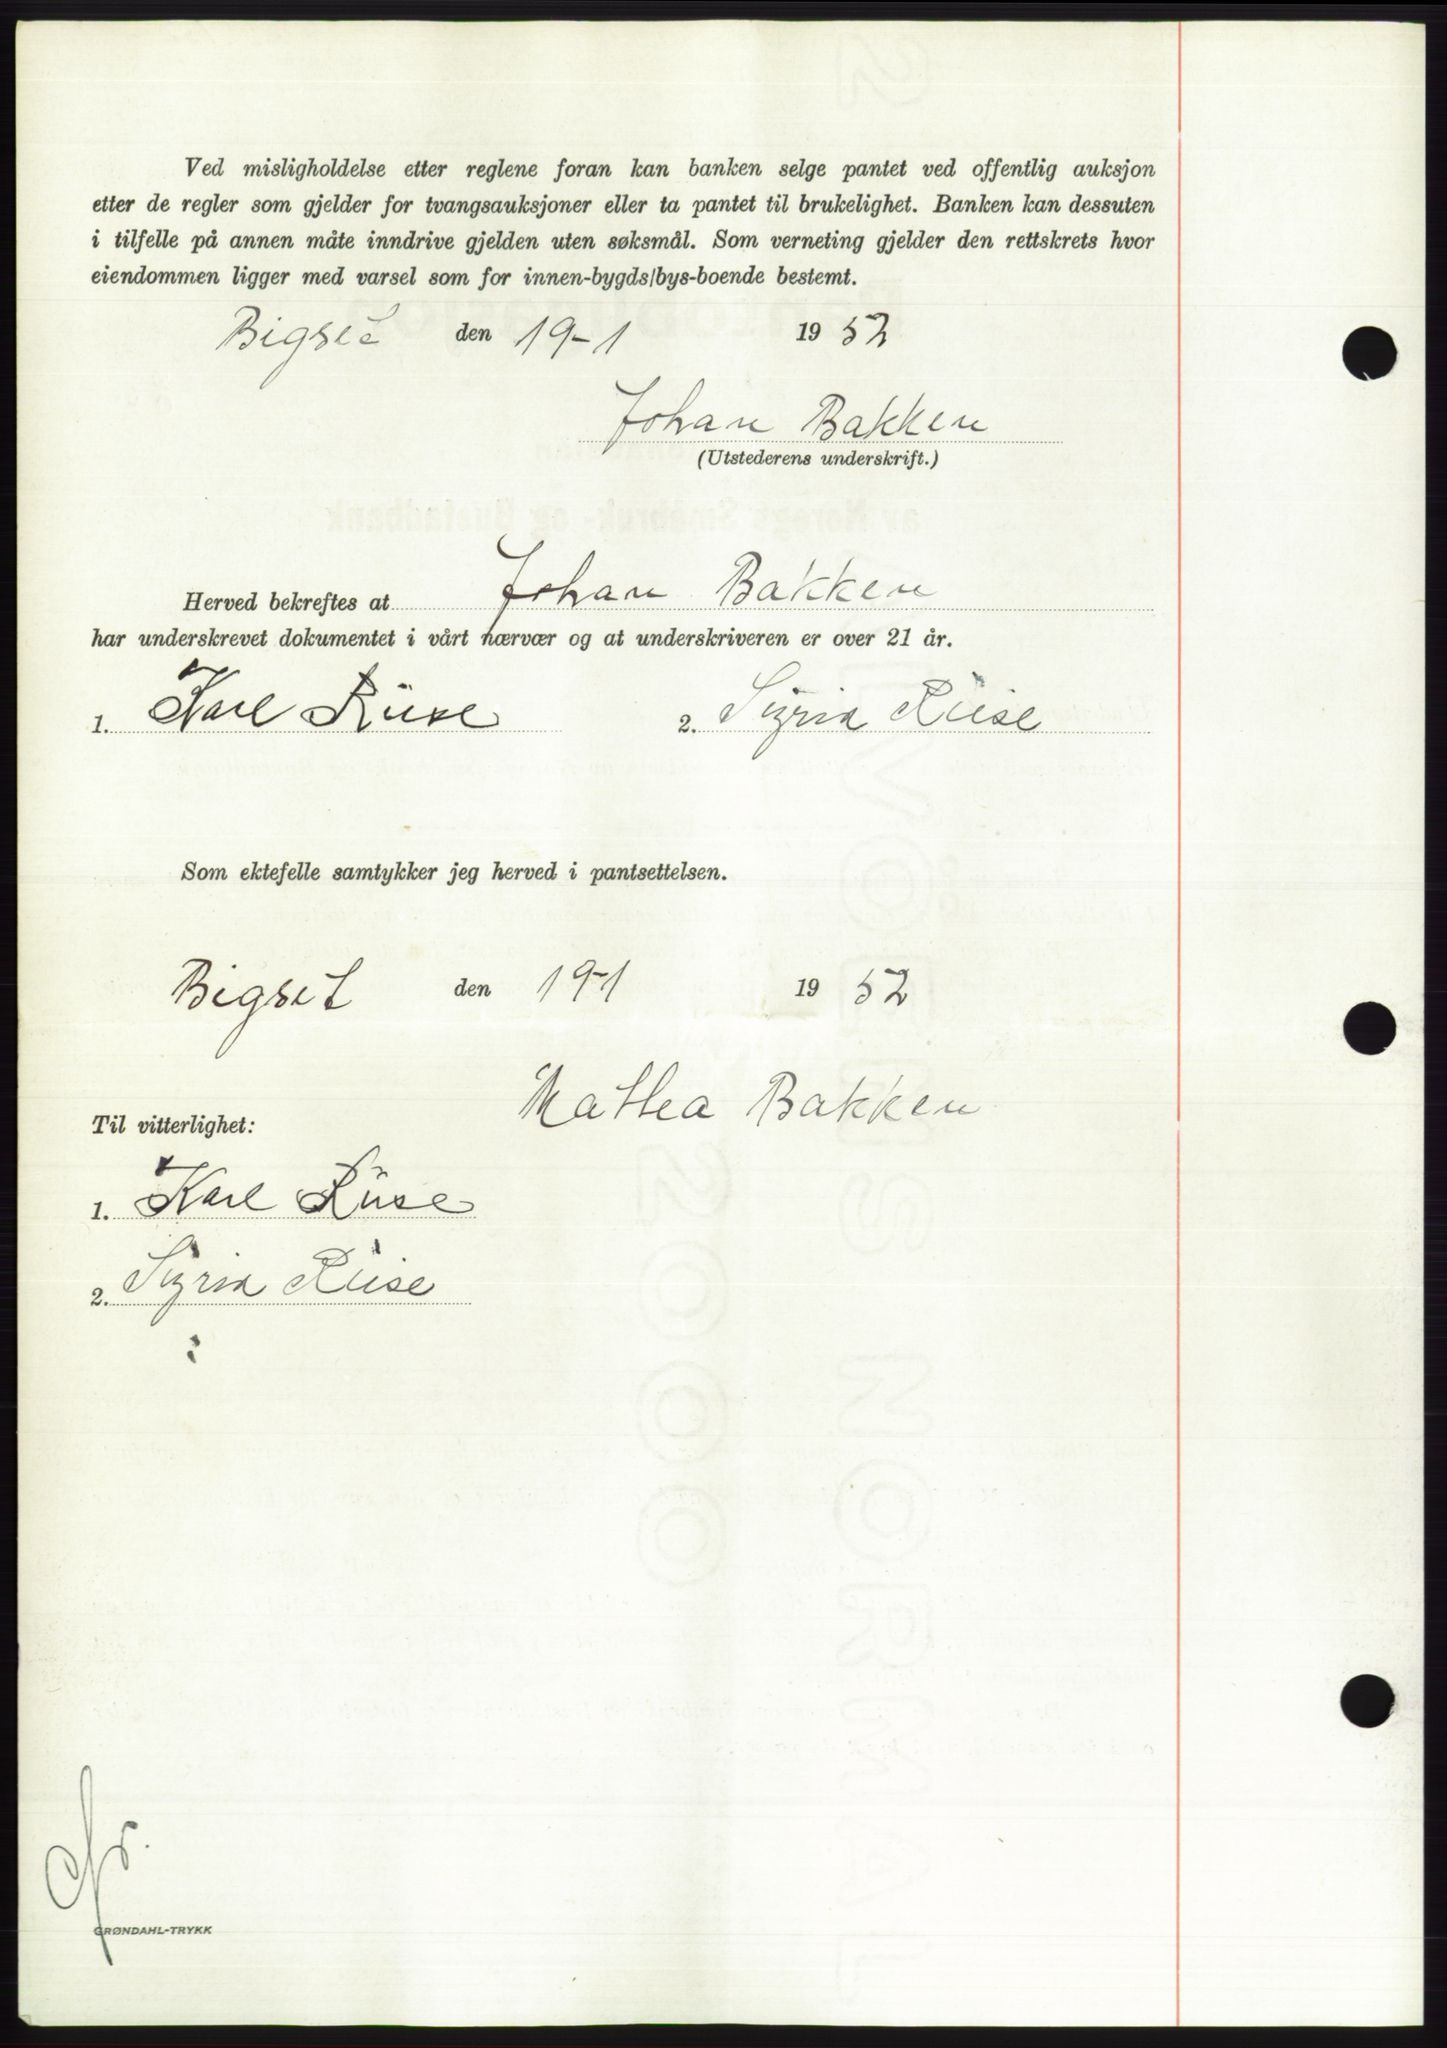 Ved misligholdelse etter reglene foran kan banken selge pantet ved offentlig auksjon
etter de regler som gjelder for tvangsauksjoner eller ta pantet til brukelighet. Banken kan dessuten
i tilfelle på annen måte inndrive gjelden uten søksmål. Som verneting gjelder den rettskrets hvor
eiendommen ligger med varsel som for innen-bygds/bys-boende bestemt.
Bigset den 19-1 1952
Johan Bakken
(Utstederens underskrift.)
Herved bekreftes at Johan Bakken
har underskrevet dokumentet i vårt nærvær og at underskriveren er over 21 år.
1. Karl Riise 2. Sigrid Riise
Som ektefelle samtykker jeg herved i pantsettelsen.
Bigset den 19-1 1952
Mathea Bakken
Til vitterlighet:
1. Karl Riise
2. Sigrid Riise
GRØNDAHL-TRYKK